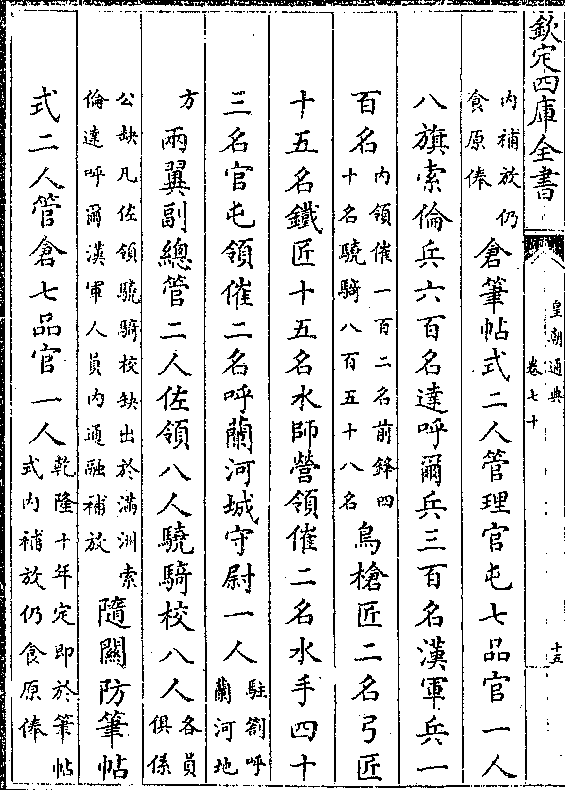 欽定四庫全書
皇朝通典
卷七十
十五
內補放仍食原俸倉筆帖式二人管理官屯七品官一人
八旗索倫兵六百名達呼爾兵三百名漢軍兵一
百名內領催一百二名前鋒四十名驍騎八百五十八名鳥槍匠二名弓匠
十五名鐵匠十五名水師營領催二名水手四十
三名官屯領催二名呼蘭河城守尉一人駐劄呼蘭河地
方兩翼副總管二人佐領八人驍騎校八人各員俱係
公缺凡佐領驍騎校缺出於滿洲索倫達呼爾漢軍人員內通融補放隨關防筆帖
式二人管倉七品官一人乾隆十年定即於筆帖式內補放仍食原俸